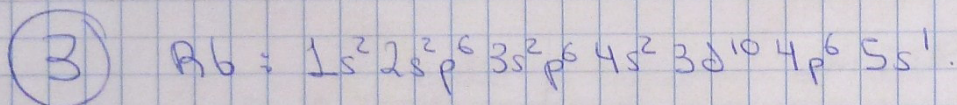 3 Rb : 1s² 2s² p⁶ 3s² p⁶ 4s² 3d¹⁰ 4p⁶ 5s¹.